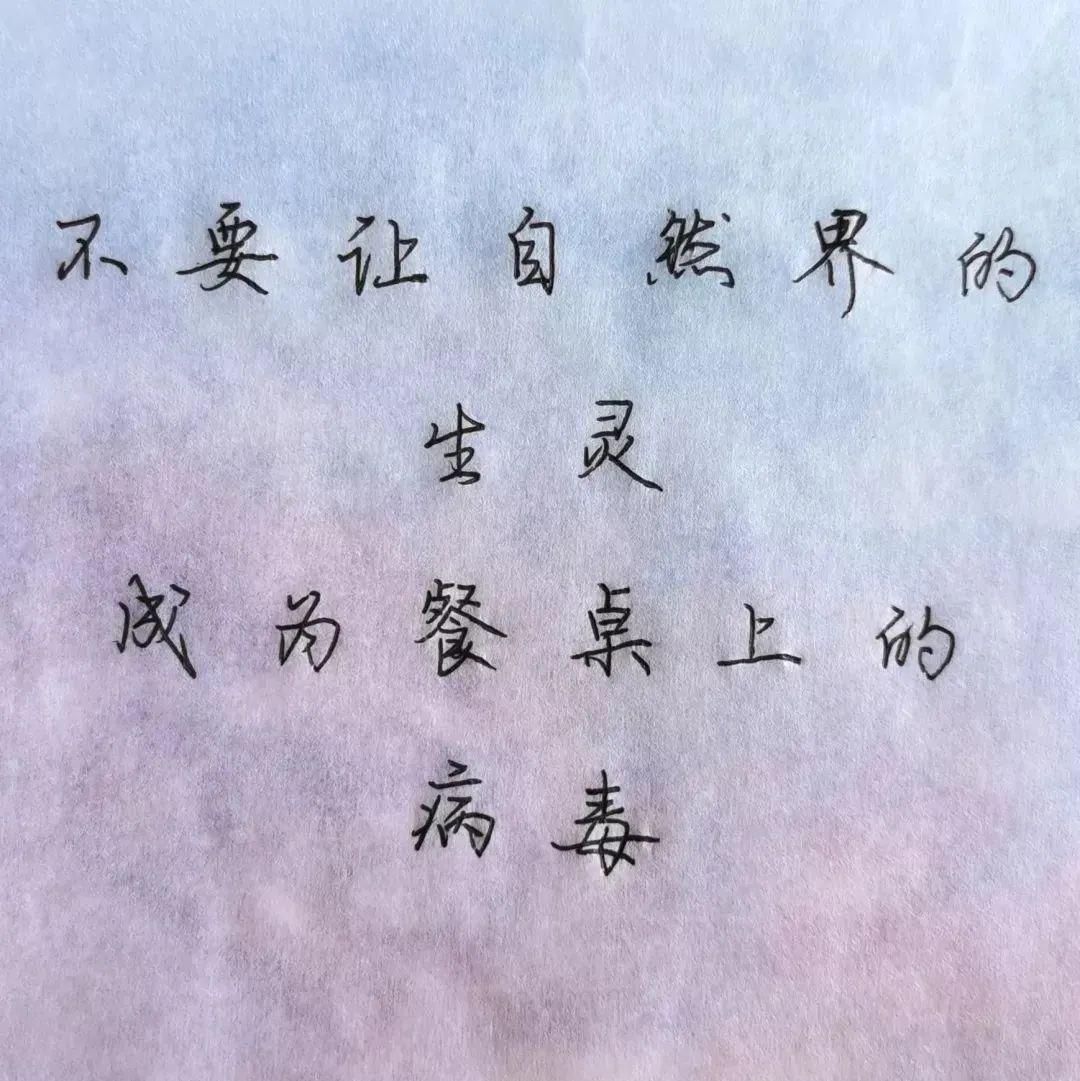 不要让自然界的
生灵
成为餐桌上的
病毒